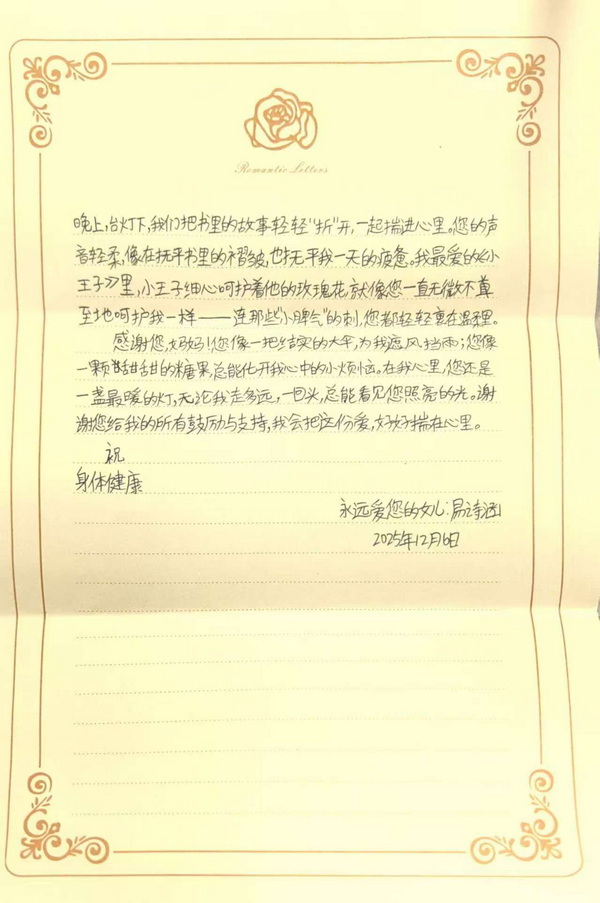 Romantic Letters
晚上,台灯下,我们把书里的故事轻轻“折”开,一起揣进心里。您的声
音轻柔,像在抚平书里的褶皱,也抚平我一天的疲惫。我最爱的《小
王子》里,小王子细心呵护着他的玫瑰花,就像您一直无微不
至地呵护我一样——连那些“小脾气”的刺,您都轻轻裹在温柔里。
感谢您,妈妈!您像一把结实的大伞,为我遮风挡雨;您像
一颗甜甜的糖果,总能化开我心中的小烦恼,在我心里,您还是
一盏最暖的灯,无论我走多远,一回头,总能看见您照亮的光。谢
谢您给我的所有鼓励与支持,我会把这份爱,好好揣在心里。
祝
身体健康
永远爱您的女儿:易诗涵
2025年12月6日